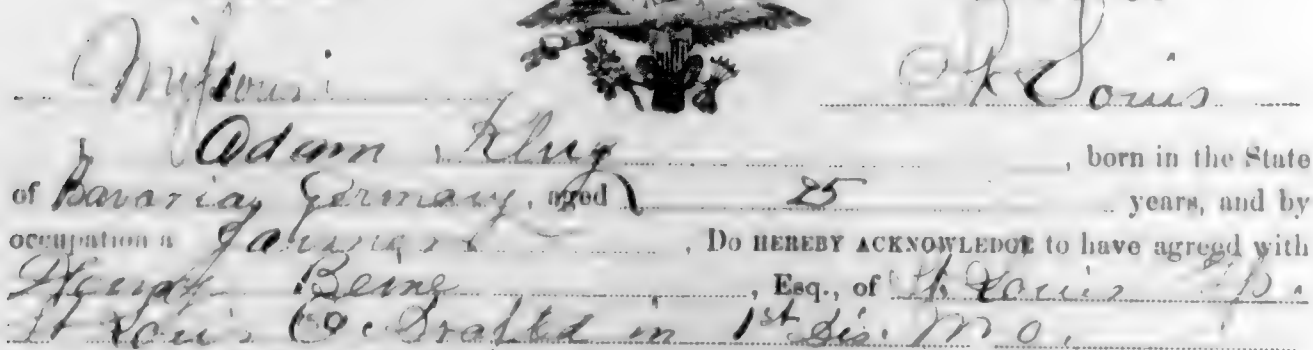 Missouri St Louis
I, Adam Klug, born in the State
of Bavaria, Germany, aged 25 years, and by
occupation a Farmer, Do HEREBY ACKNOWLEDGE to have agreed with
Henry Beine, Esq., of St Louis
St Louis Co. Drafted in 1st Dis. Mo.